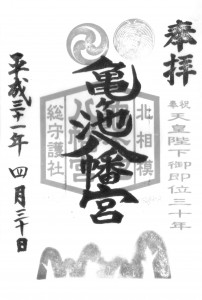 奉拝
奉祝
天皇陛下御即位三十年
北相模
亀池八幡宮
総守護社
平成三十一年 四月三十日